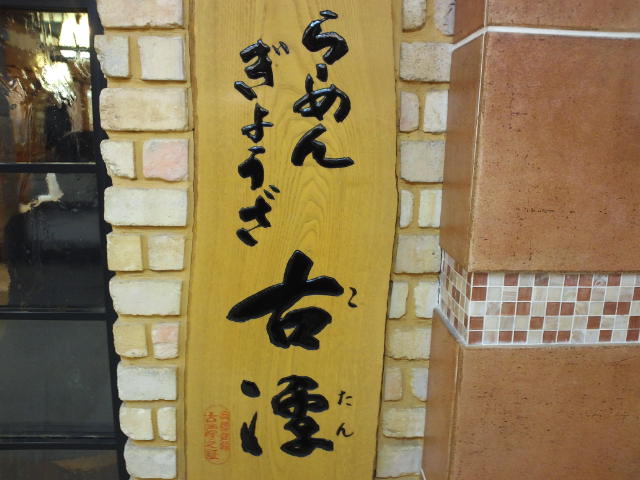 らーめん
ぎょうざ
古潭
こたん